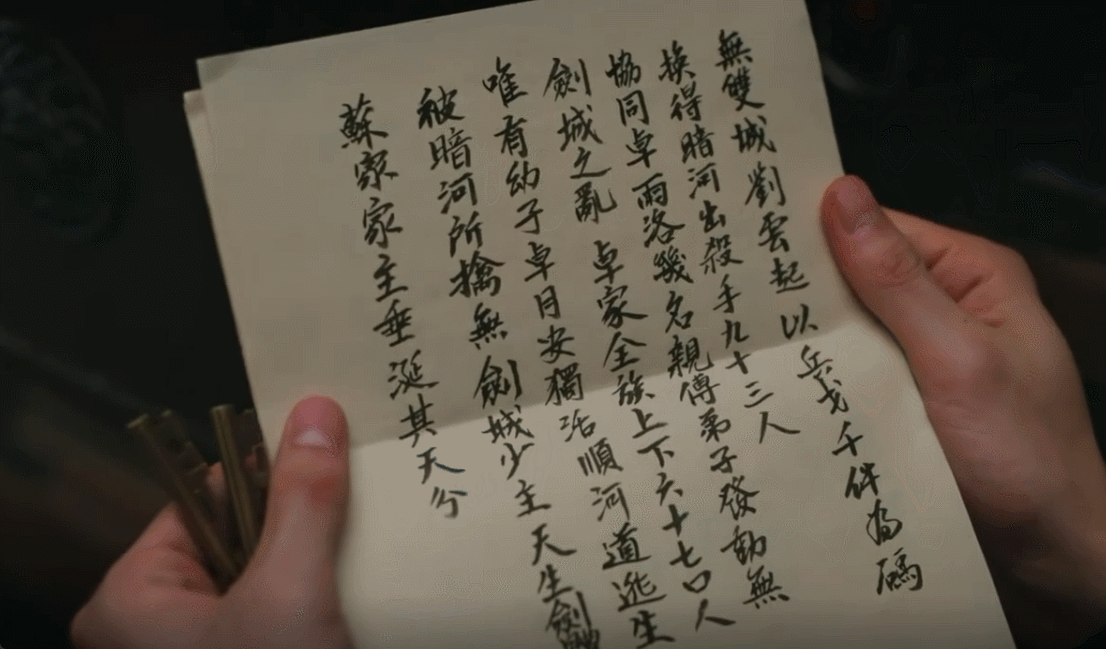 無雙城劉雲起以兵戈千件為碼
換得暗河出殺手九十三人
協同卓雨洛幾名親傳弟子發動無
劍城之亂 卓家全族上下六十七口人
唯有幼子卓月安獨活順河道逃生
被暗河所擒無劍城少主天生劍
蘇家家主垂涎其天分